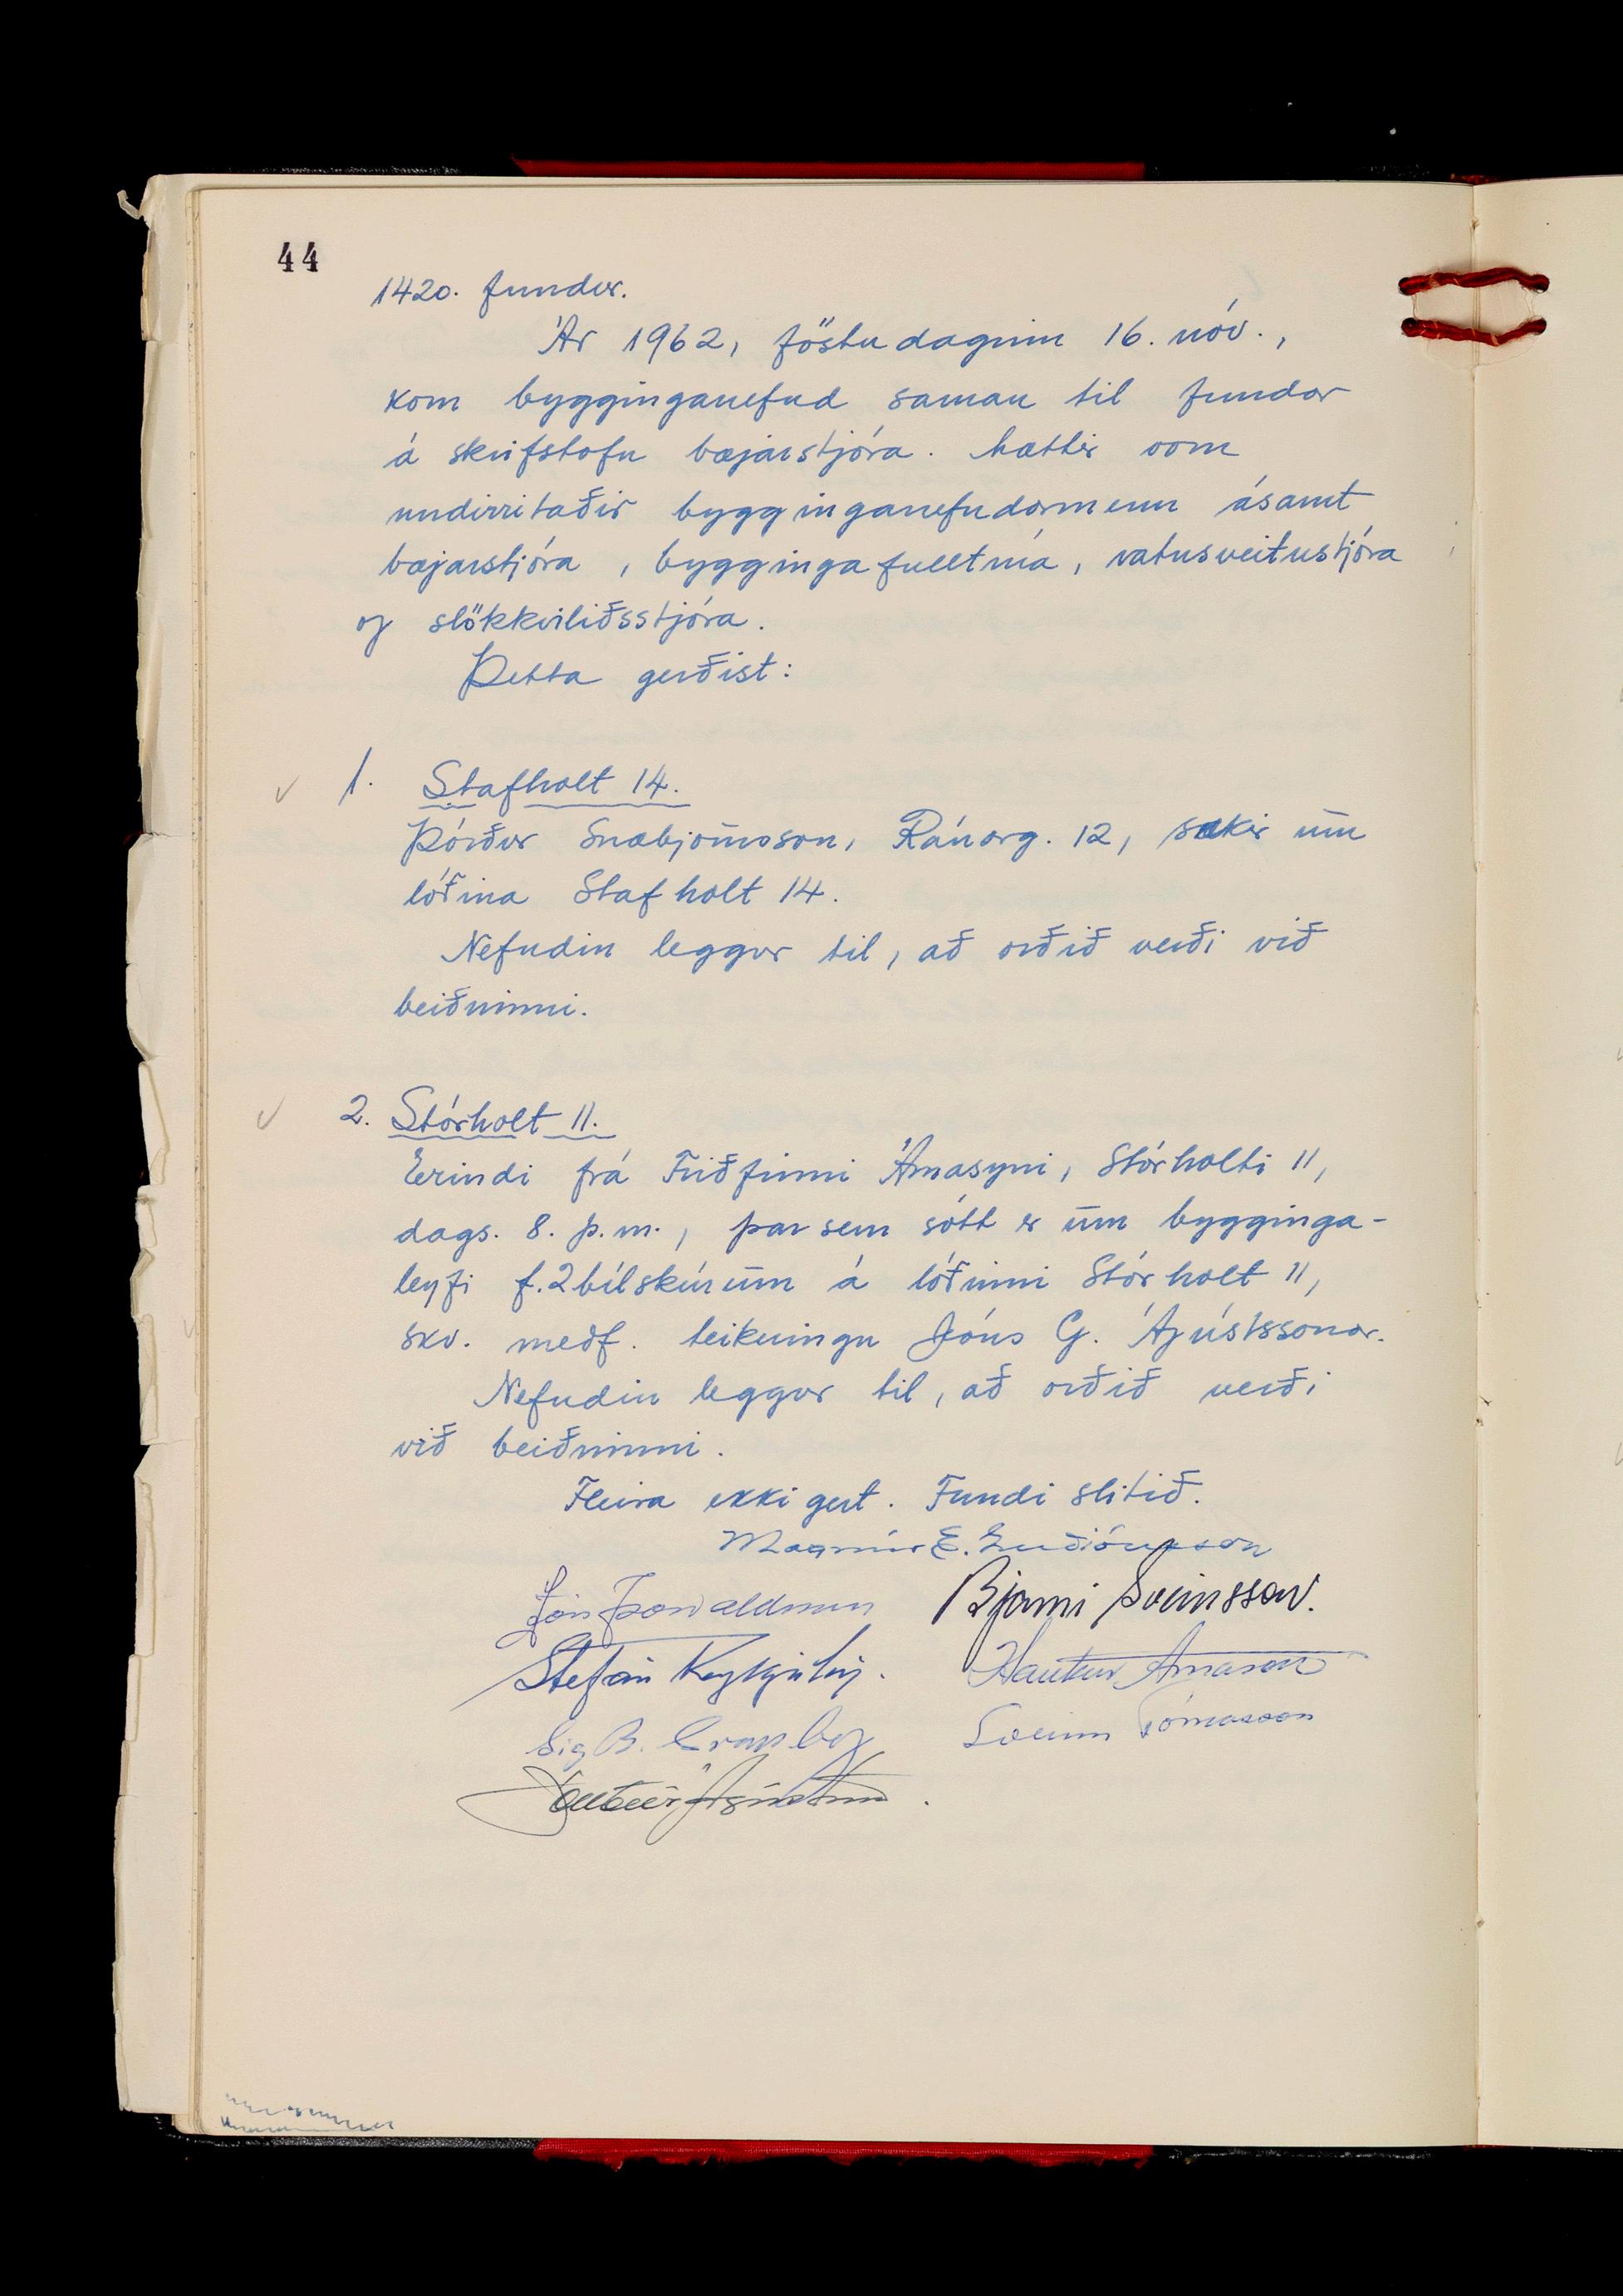 44
1420. fundur.
Ár 1962, föstudaginn 16. nóv.,
kom bygginganefnd saman til fundar
á skrifstofu bæjarstjóra. Mættir vom
undirritaðir bygginganefndarmenn ásamt
bæjarstjóra, byggingafulltrúa, vatnsveitustjóra
og slökkviliðsstjóra.
Þetta gerðist:
1. Stafholt 14.
Þórður Snæbjörnsson, Ránarg. 12, sækir um
lóðina Stafholt 14.
Nefndin leggur til, að orðið verði við
beiðninni.
2. Stórholt 11.
Erindi frá Friðfinni Árnasyni, Stórholti 11,
dags. 8. þ.m., þar sem sótt er um bygginga-
leyfi f. 2 bílskúrum á lóðinni Stórholt 11,
skv. meðf. teikningu Jóns G. Ágústssonar.
Nefndin leggur til, að orðið verði
við beiðninni.
Fleira ekki gert. Fundi slitið.
Magnús E. Guðjónsson
Jón Þorvaldsson Bjarni Sveinsson.
Stefán Reykjalín. Haukur Árnason
Sig B. Sveinn Tómasson